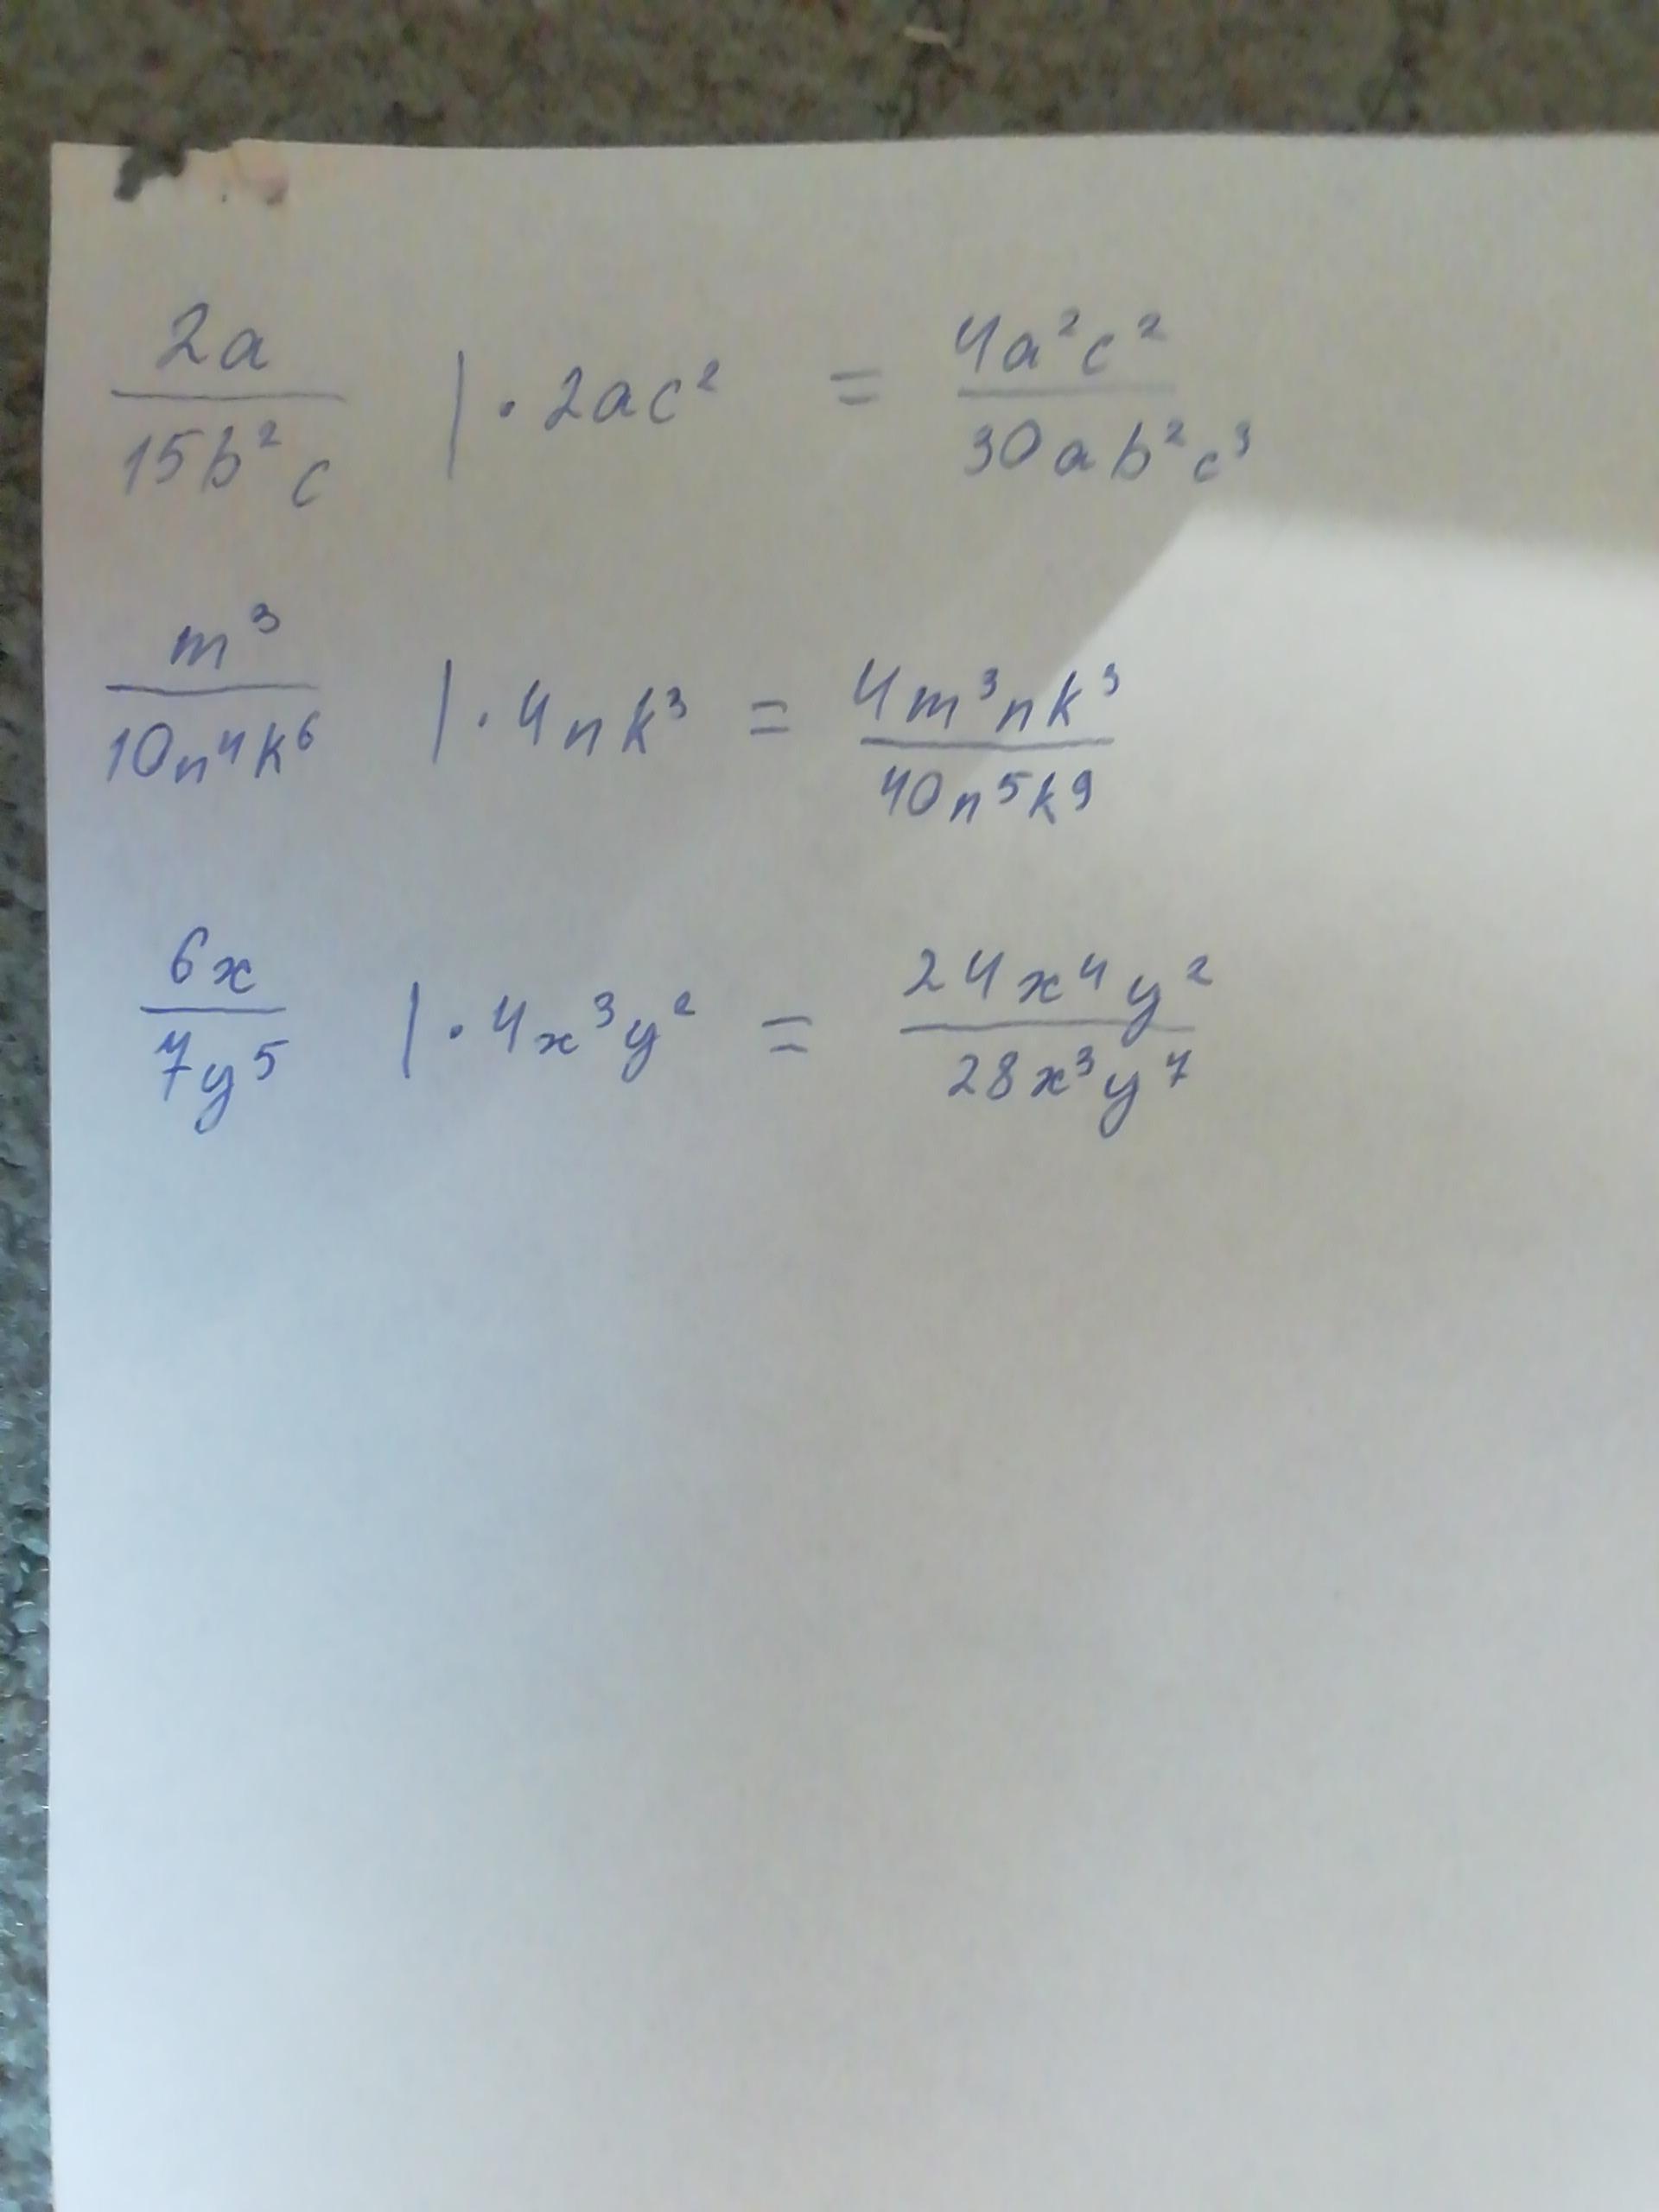 2a/15b²c | · 2ac² = 4a²c²/30ab²c³
m³/10n⁴k⁶ | · 4nk³ = 4m³nk³/40n⁵k⁹
6x/7y⁵ | · 4x³y² = 24x⁴y²/28x³y⁷